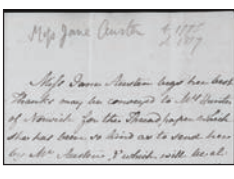 Miss Jane Austen b. 1775
d. 1817
Miss Jane Austen begs her best
Thanks may be conveyed to Mrs Hunter
of Norwich for the Thread paper which
she has been so kind as to send her
by Mr Austen, & which will be al